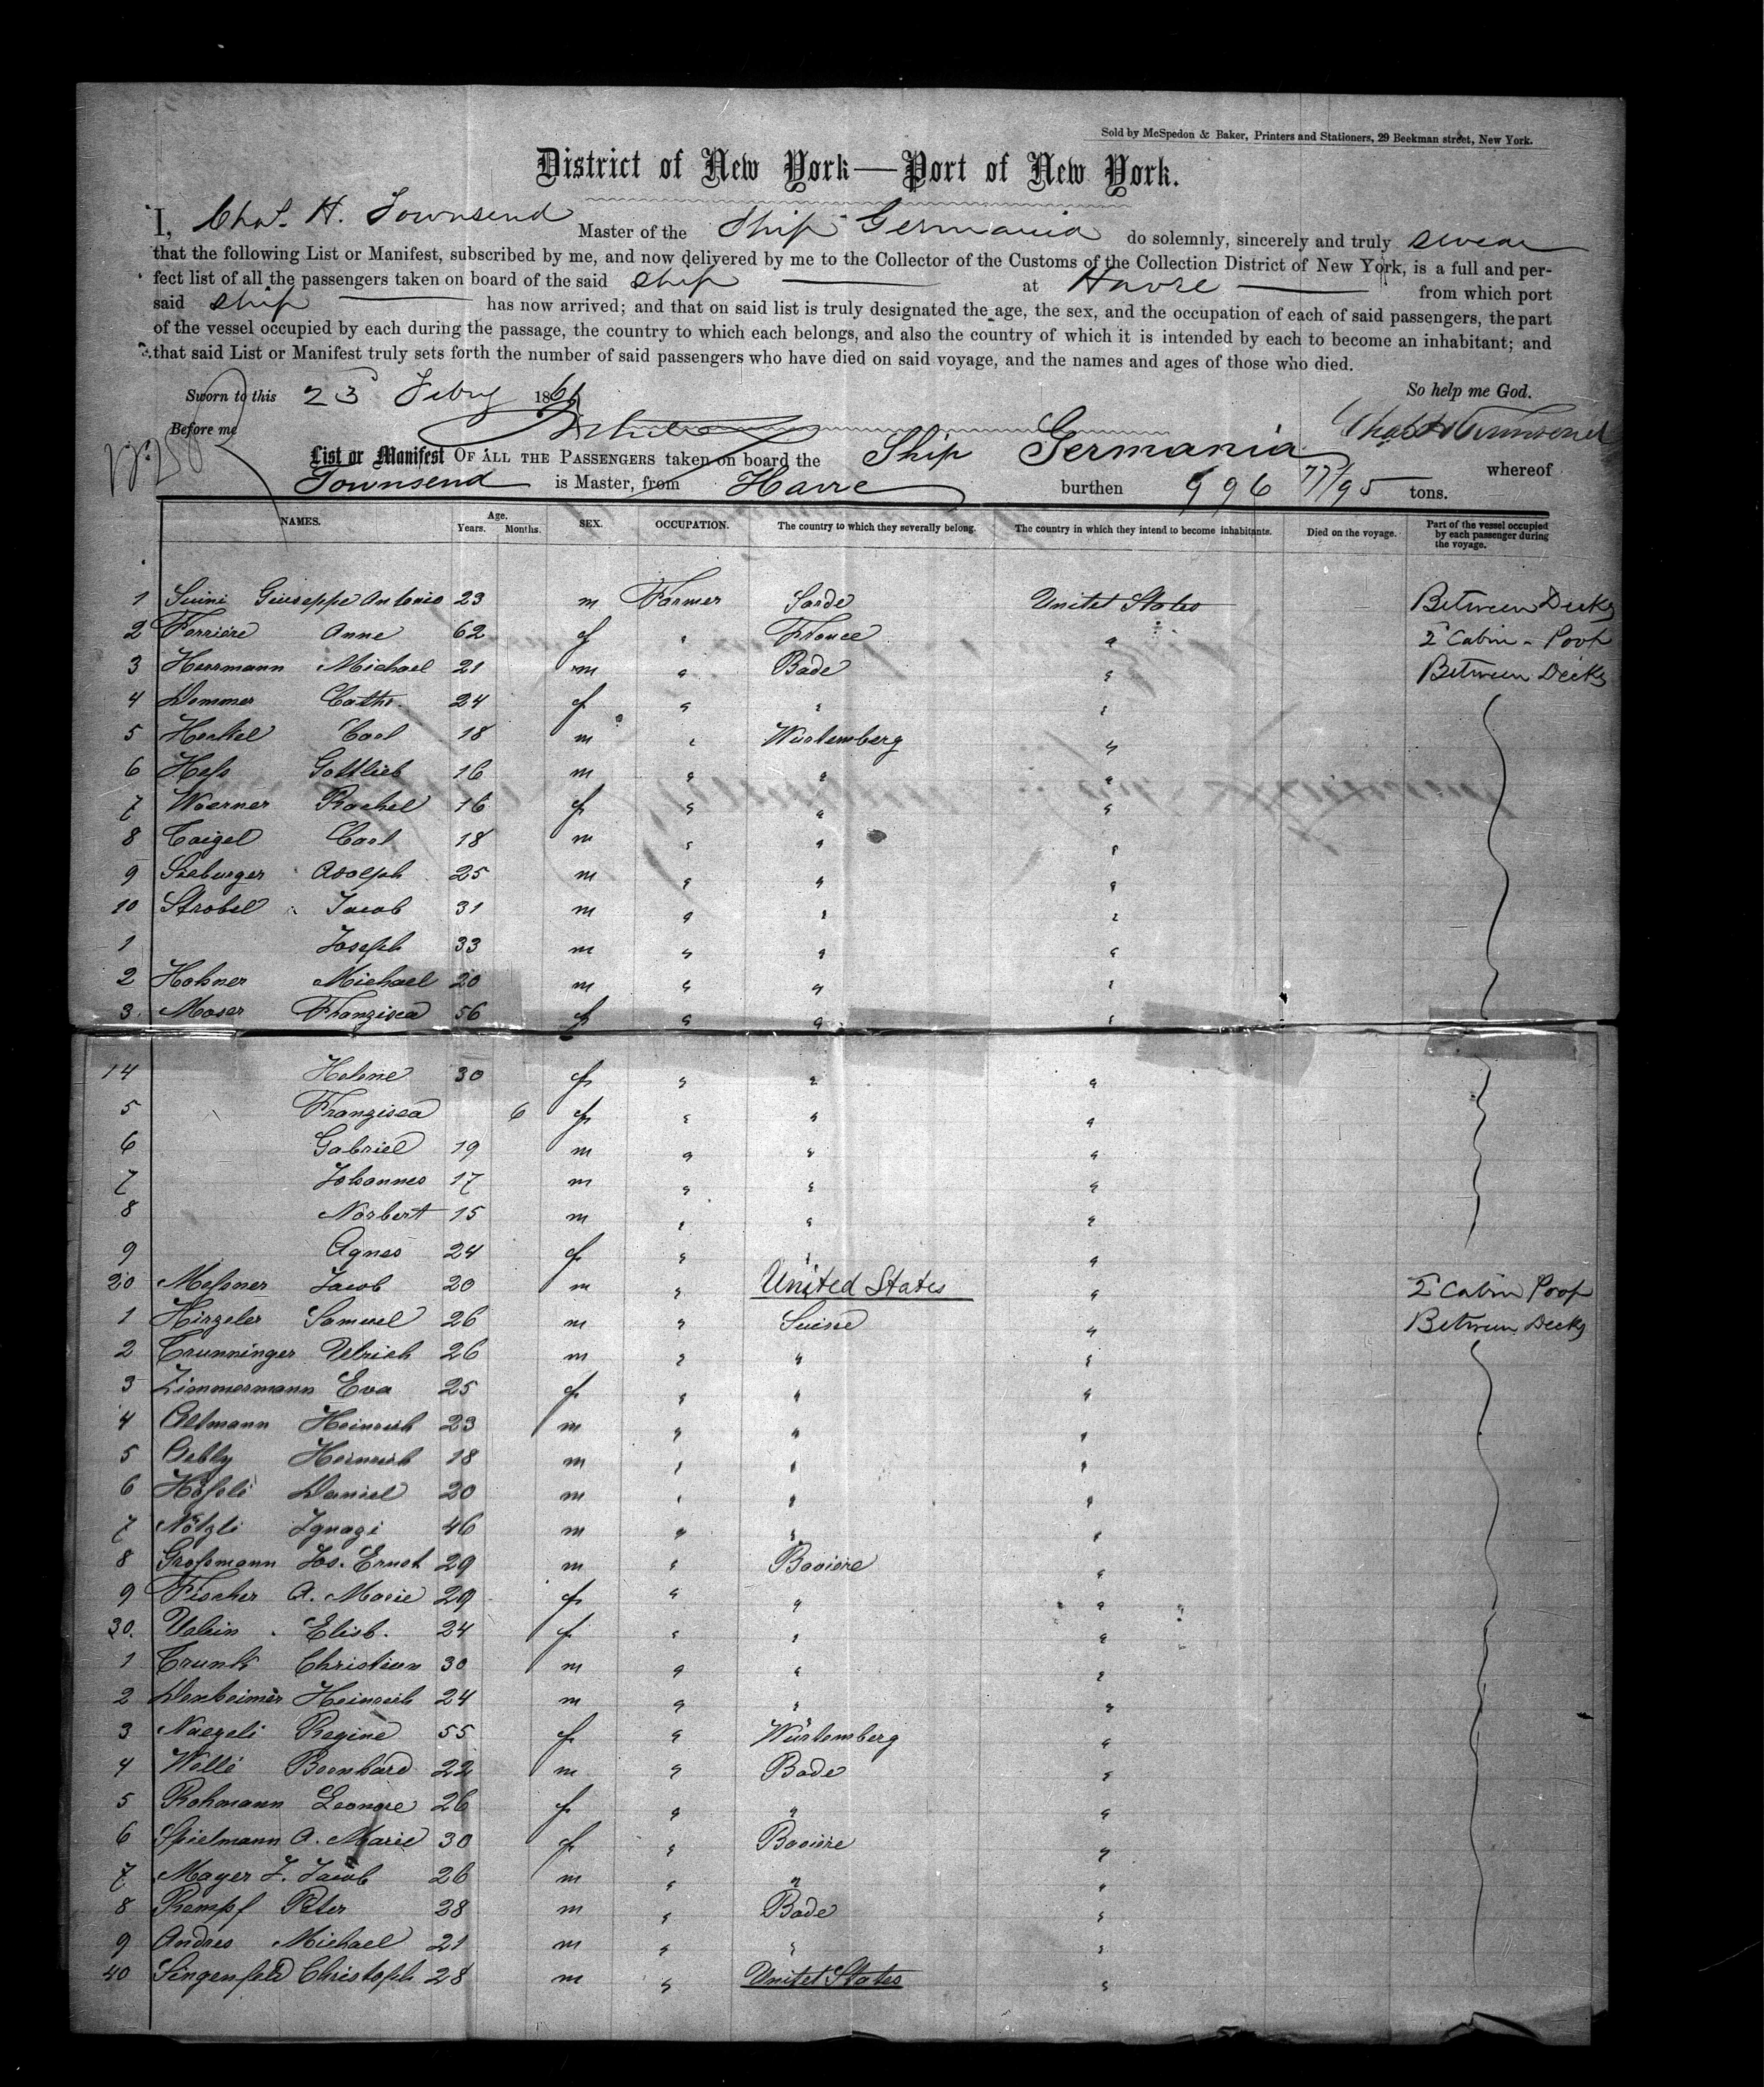 Sold by McSpedon & Baker, Printers and Stationers, 29 Beekman street, New York.
District of New York—Port of New York.
I, Chas. H. Townsend Master of the Ship Germania do solemnly, sincerely and truly swear
that the following List or Manifest, subscribed by me, and now delivered by me to the Collector of the Customs of the Collection District of New York, is a full and per-
fect list of all the passengers taken on board of the said ship at Havre from which port
said ship has now arrived; and that on said list is truly designated the age, the sex, and the occupation of each of said passengers, the part
of the vessel occupied by each during the passage, the country to which each belongs, and also the country of which it is intended by each to become an inhabitant; and
that said List or Manifest truly sets forth the number of said passengers who have died on said voyage, and the names and ages of those who died.
Sworn to this 23 Febry 1861 So help me God.
Before me Chas H Townsend
List or Manifest OF ALL THE PASSENGERS taken on board the Ship Germania whereof
Townsend is Master, from Havre burthen 996 77/95 tons.
NAMES. Age. Years. Months. SEX. OCCUPATION. The country to which they severally belong. The country in which they intend to become inhabitants. Died on the voyage. Part of the vessel occupied by each passenger during the voyage.
1 Giuseppe Antonio 23 m Farmer Sarde Unitet States Between Decks
2 Ferriére Anne 62 f " France " 2 Cabin - Poop
3 Herrmann Michael 21 m " Bade " Between Decks
4 Demmer Cath. 24 f " " "
5 Henkel Carl 18 m " Würtemberg "
6 Hess Gottlieb 16 m " " "
7 Woerner Rachel 16 f " " "
8 Taigel Carl 18 m " " "
9 Sieburger Adolph 25 m " " "
10 Strobel Jacob 31 m " " "
1 Joseph 33 m " " "
2 Hohner Michael 20 m " " "
3 Moser Franzisca 56 f " " "
14 Helene 30 f " " "
5 Franzisca 6 f " " "
6 Gabriel 19 m " " "
7 Johannes 17 m " " "
8 Norbert 15 m " " "
9 Agnes 24 f " " "
20 Messner Jacob 20 m " United States " 2 Cabin Poop
1 Hirzeler Samuel 26 m " Suisse " Between Decks
2 Trunninger Ulrich 26 m " " "
3 Zimmermann Eva 25 f " " "
4 Altmann Heinrich 23 m " " "
5 Aebly Heinrich 18 m " " "
6 Hössli Daniel 20 m " " "
7 Nötzli Ignazi 46 m " " "
8 Grossmann Jos. Ernst 29 m " Baviere "
9 Fischer A. Marie 29 f " " "
30. Elisb. 24 f " " "
1 Trunk Christian 30 m " " "
2 Dexheimer Heinrich 24 m " " "
3 Naegeli Regine 55 f " Würtemberg "
4 Wölle Bernhard 22 m " Bade "
5 Rohmann Leonore 26 f " " "
6 Spielmann A. Marie 30 f " Baviere "
7 Mayer J. Jacob 26 m " " "
8 Rempf Peter 28 m " Bade "
9 Andres Michael 21 m " " "
40 Singenfeld Christoph 28 m " Unitet States "